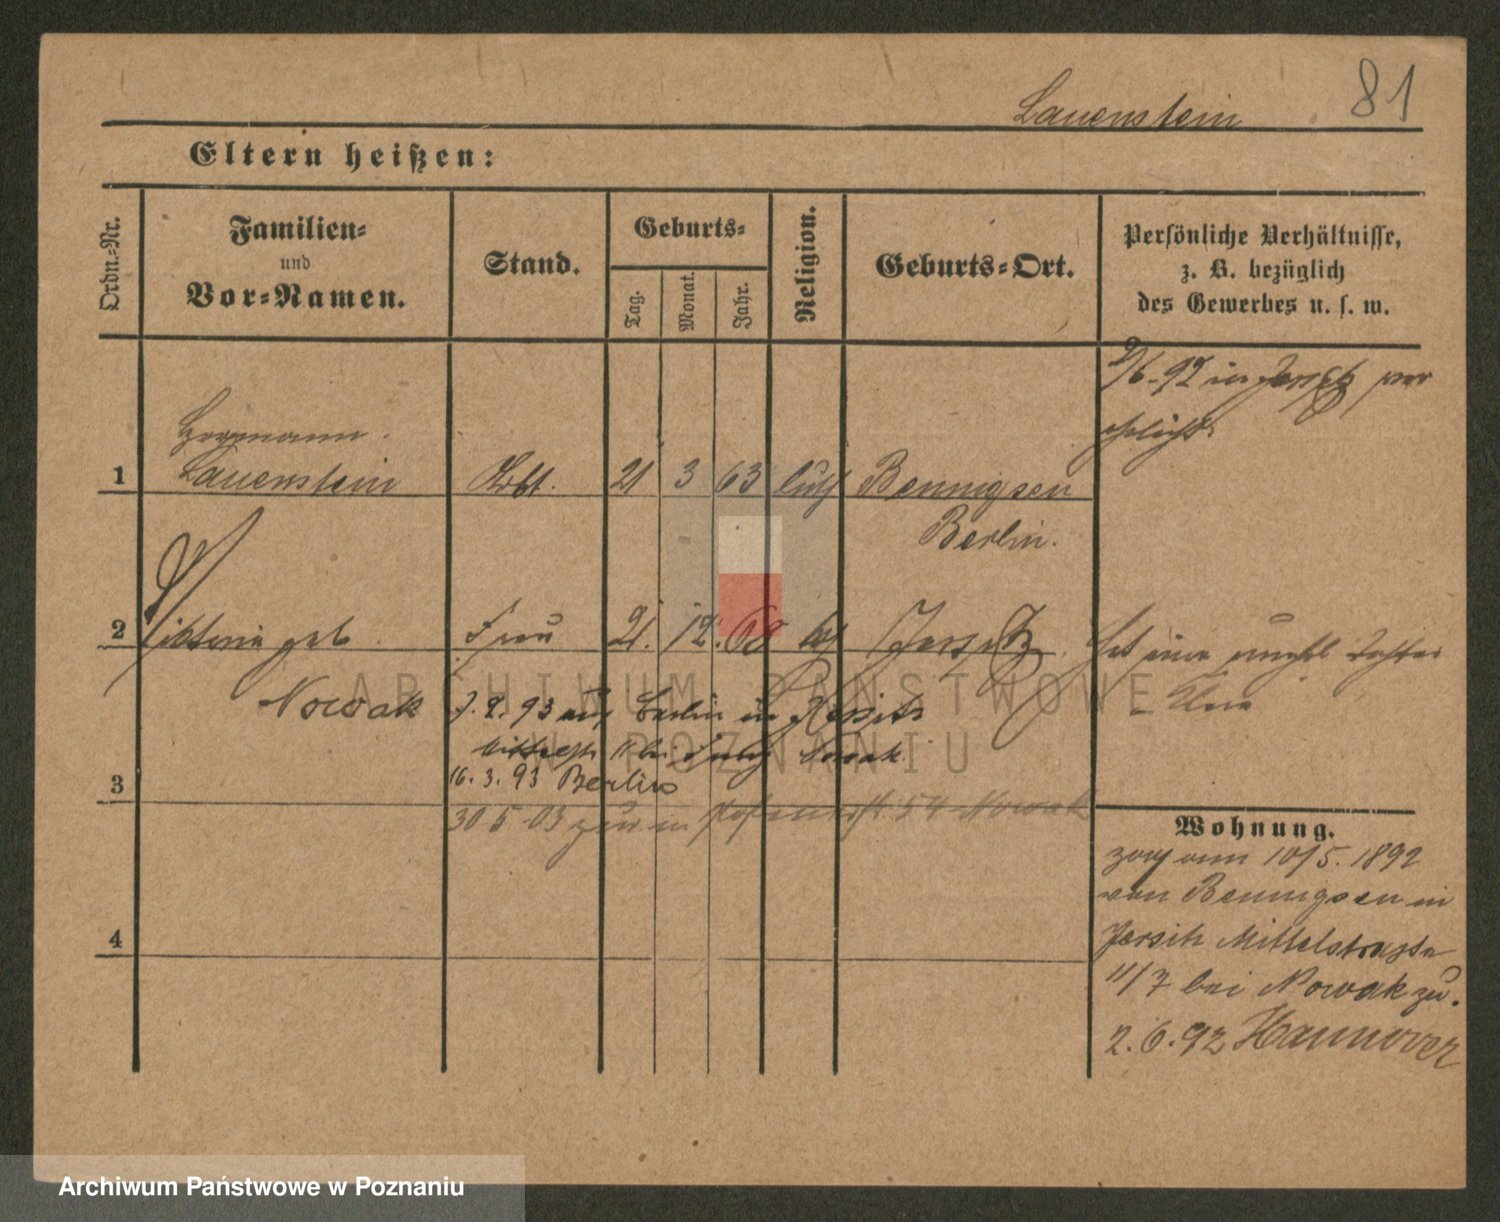 81
Lauenstein
Eltern heißen:
Ordn.-Nr.
Familien-
und
Vor-Namen.
Stand.
Geburts-
Tag.
Monat.
Jahr.
Religion.
Geburts-Ort.
Persönliche Verhältnisse,
z. B. bezüglich
des Gewerbes u. s. w.
2/6-92 in Jersitz ver
ehelicht.
Hermann
1 Lauenstein Arbt. 21 3 63 luth Bennigsen
Berlin.
2 Viktoria geb. Frau 21. 12. 68 kath Jersitz Hat eine unehel. Tochter
Nowak
7. 2. 93 aus Berlin in Jersitz
11 bei Nowak.
3 16. 3. 93 Berlin
30 5 03 54 Nowak
Wohnung.
zog am 10/5. 1892
von Bennigsen in
Jersitz Mittelstrasse
11/7 bei Nowak zu.
2. 6. 92 Hannover
4
ARCHIWUM PAŃSTWOWE
W POZNANIU
Archiwum Państwowe w Poznaniu